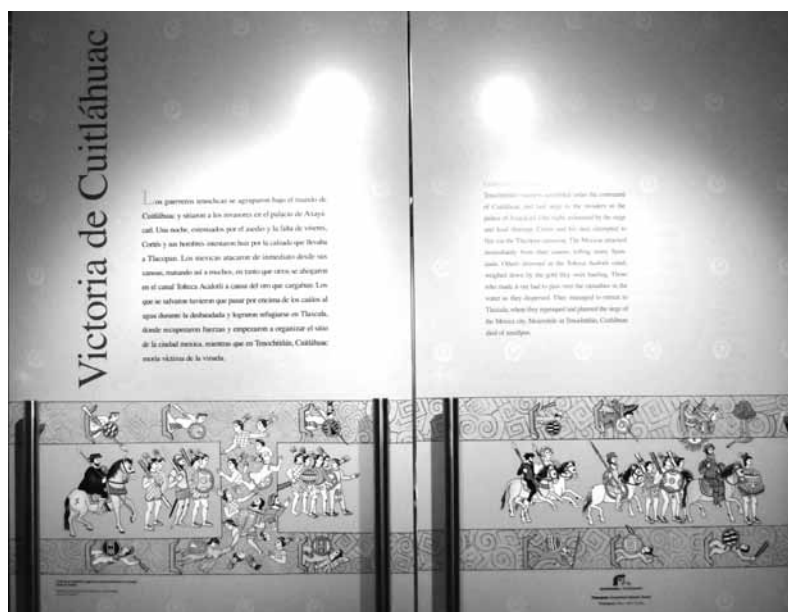 Victoria de Cuitláhuac
Los guerreros tenochcas se agruparon bajo el mando de
Cuitláhuac y sitiaron a los invasores en el palacio de Axayá-
catl. Una noche, extenuados por el asedio y la falta de víveres,
Cortés y sus hombres intentaron huir por la calzada que llevaba
a Tlacopan. Los mexicas atacaron de inmediato desde sus
canoas, matando así a muchos, en tanto que otros se ahogaron
en el canal Tolteca Acalotli a causa del oro que cargaban. Los
que se salvaron tuvieron que pasar por encima de los caídos al
agua durante la desbandada y lograron refugiarse en Tlaxcala,
donde recuperaron fuerzas y empezaron a organizar el sitio
de la ciudad mexica, mientras que en Tenochtitlán, Cuitláhuac
moría víctima de la viruela.
Tenochtitlan's warriors assembled under the command
of Cuitláhuac and laid siege to the invaders in the
palace of Axayácatl. One night, exhausted by the siege
and food shortage, Cortés and his men attempted to
flee via the Tlacopan causeway. The Mexicas attacked
immediately from their canoes, killing many Span-
iards. Others drowned in the Tolteca Acalotli canal,
weighed down by the gold they were hauling. Those
who made it out had to pass over the casualties in the
water as they dispersed. They managed to retreat to
Tlaxcala, where they regrouped and planned the siege of
the Mexica city. Meanwhile in Tenochtitlán, Cuitláhuac
died of smallpox.